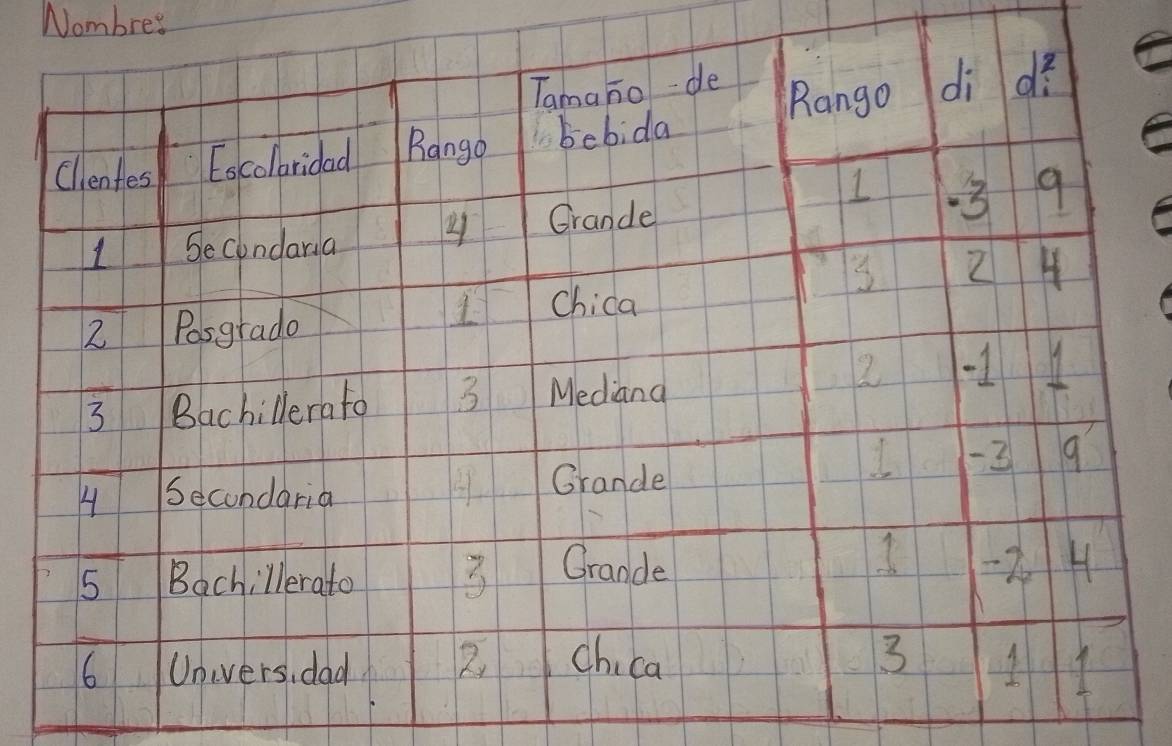 Nombre:
Clientes Escolaridad Rango Tamaño de bebida Rango di di²
1 Secundaria 4 Grande 1 -3 9
2 Posgrado 1 Chica 3 2 4
3 Bachillerato 3 Mediana 2 -1 1
4 Secundaria 4 Grande 1 -3 9
5 Bachillerato 3 Grande 1 -2 4
6 Universidad 2 Chica 3 1 1